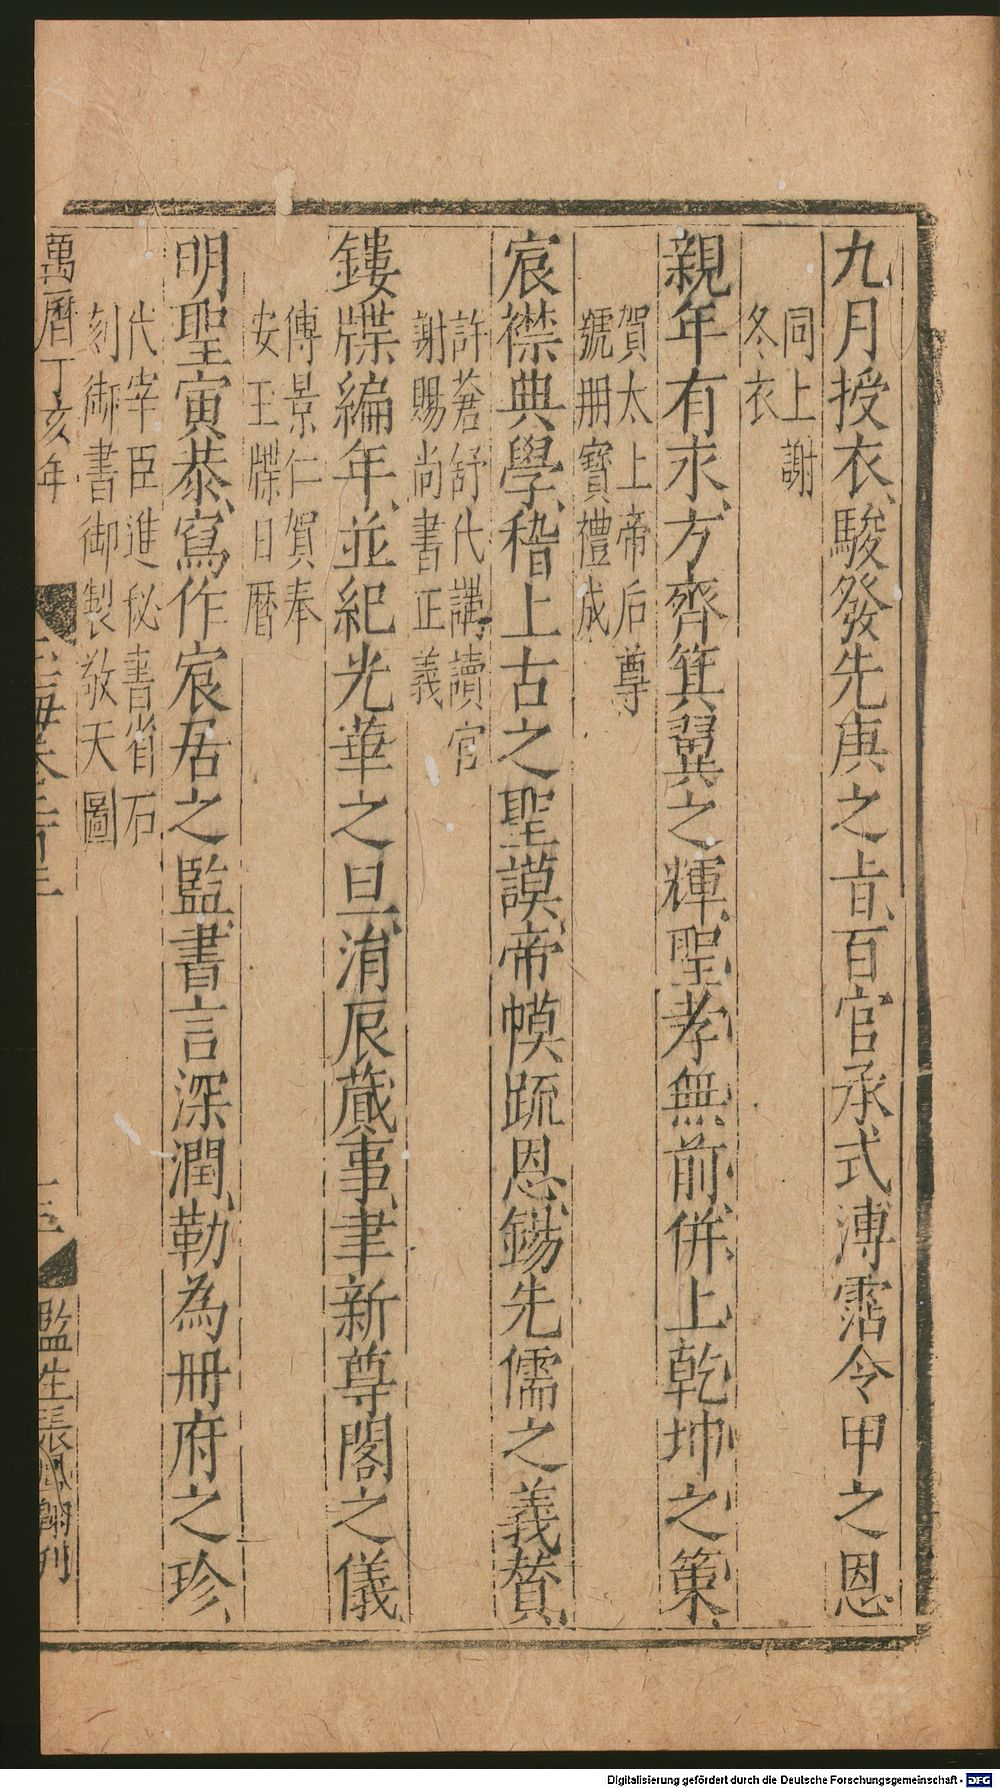 九月授衣、駿發先庚之㫖、百官承式溥霑令甲之恩
同上謝
冬衣
親年有永、方齊箕翼之輝、聖孝無前、併上乾坤之策、
賀太上帝后尊
號冊寳禮成
宸襟典學、稽上古之聖謨、帝幙䟽恩、錫先儒之義贊、
許蒼舒代講讀官
謝賜尚書正義
鏤牒編年、並紀光華之旦、涓辰蕆事、聿新尊閣之儀
傅景仁賀奉
安玉牒日暦
明聖寅恭、寫作宸居之監、書言深潤、勒為冊府之珍、
代宰臣進秘書省石
刻御書御製敬天圖
萬曆丁亥年
玉海卷
監生張 翀刊
Digitalisierung gefördert durch die Deutsche Forschungsgemeinschaft - DFG